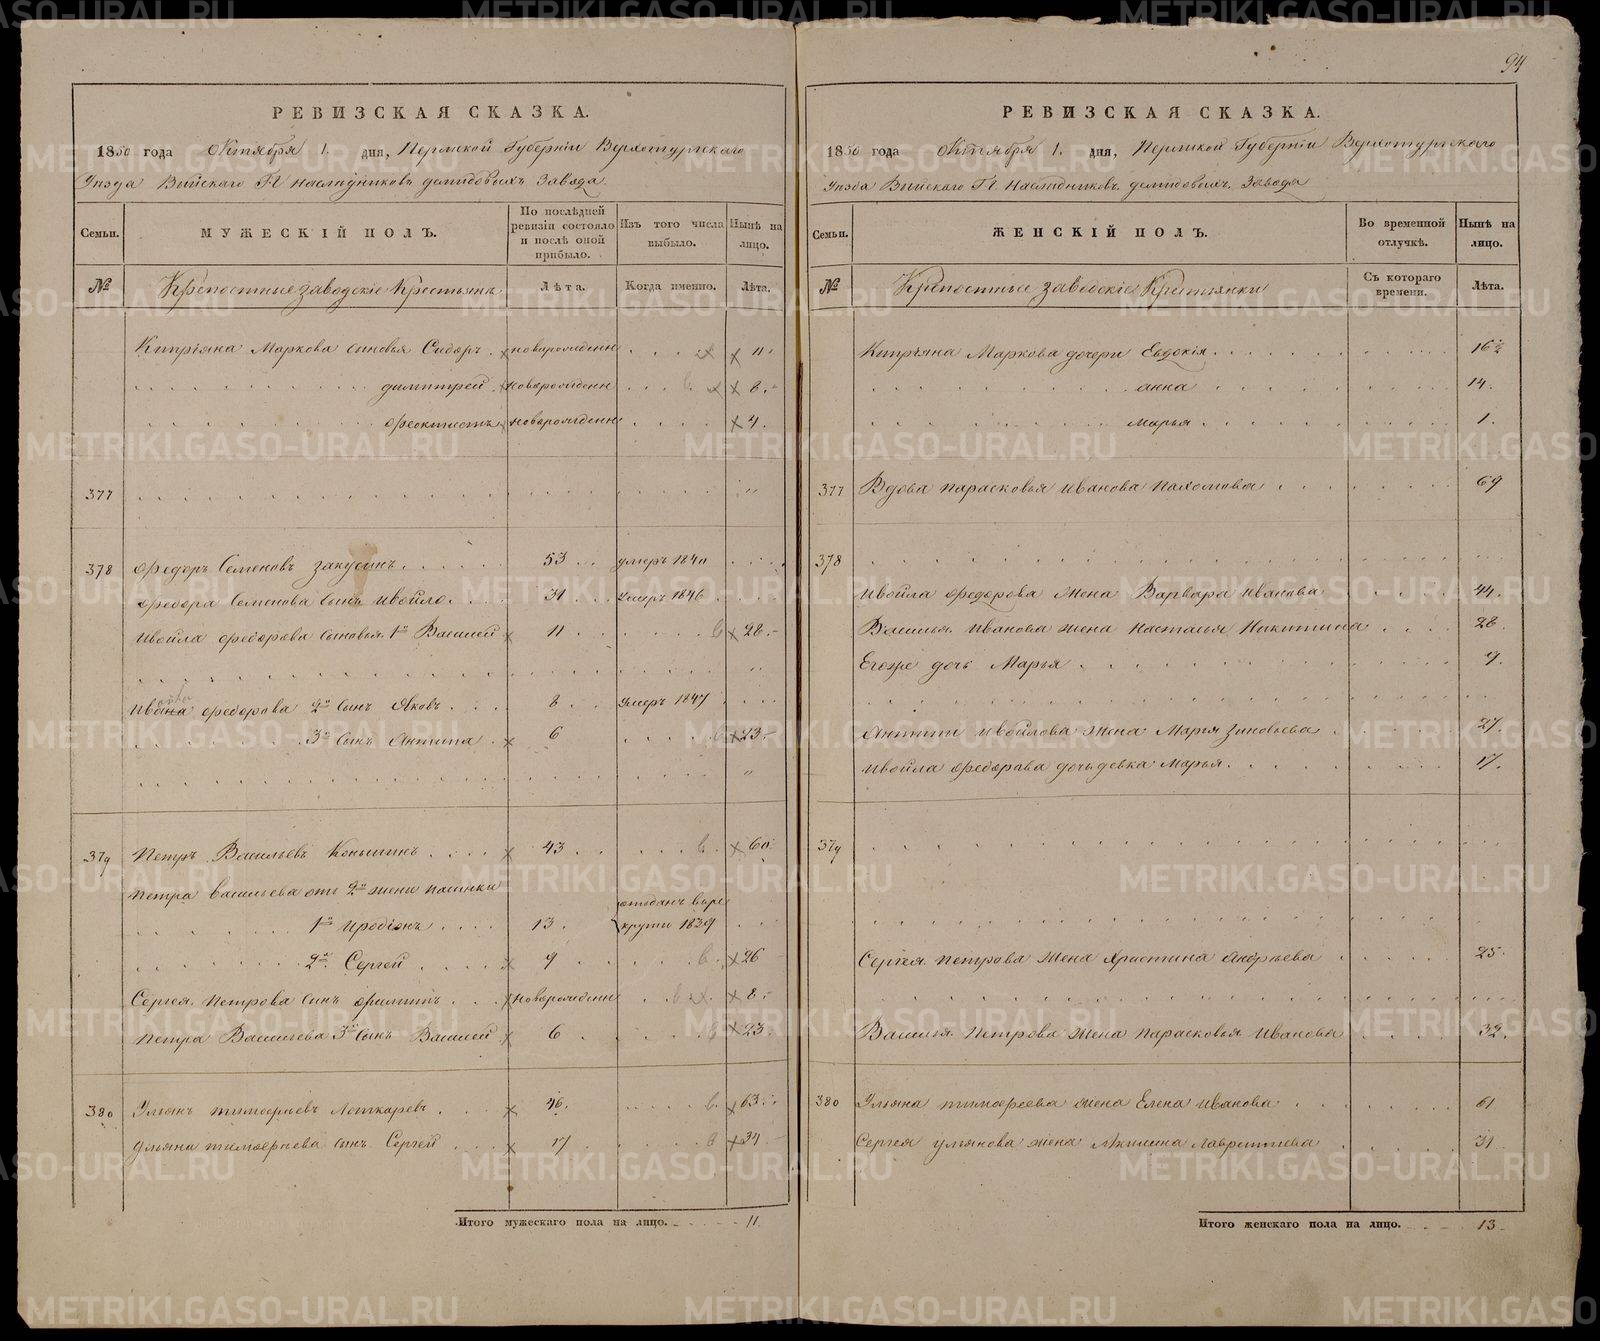 94
РЕВИЗСКАЯ СКАЗКА.
1850 года Октября 1. дня, Пермской Губернии Верхотурскаго
Уезда Выйскаго Г.г. наследниковъ демидовыхъ Завода.
Семьи. МУЖЕСКІЙ ПОЛЪ. По послѣдней ревизіи состояло и послѣ оной прибыло. Изъ того числа выбыло. Нынѣ на лицо.
№ Крепостные заводскіе Крестьяна Лѣта. Когда именно. Лѣта.
Киприяна Маркова сыновья Сидоръ новорожденн 11
димитрей новорожденн 8.
Феоктистъ новорожденн 4.
377
378 Федоръ Семеновъ 53 умеръ 1840
Федора Семенова сынъ Ивойло. 31 умеръ 1846
Ивойла Федорова сыновья 1й Василей 11 28.
Федорова 2й сынъ Яковъ. 8 умеръ 1847
3й сынъ Антипа 6 23.
379 Петръ Васильевъ Коньшинъ 43 60
Петра Васильева отъ 2й жены пасынки
1й Иродіонъ 13. отданъ въре
круты 1839
2й Сергей 9 26
Сергея Петрова сынъ Филиппъ новорожденн 8.
Петра Васильева 3й сынъ Василей 6 23.
380 Ульянъ тимофеевъ 46. 63.
Ульяна тимофеева сынъ Сергей 17 34
Итого мужескаго пола на лицо. 11.
РЕВИЗСКАЯ СКАЗКА.
1850 года Октября 1. дня, Пермской Губернии Верхотурскаго
Уезда Выйскаго Г.г. наследниковъ демидовыхъ Завода
Семьи. ЖЕНСКІЙ ПОЛЪ. Во временной отлучкѣ. Нынѣ на лицо.
№ Крепостные заводскіе Крестьянки Съ котораго времени. Лѣта.
Киприяна Маркова дочери Евдокія 16½
анна 14.
марья 1.
377 Вдова парасковья иванова пахомова 69
378
Ивойла Федорова жена Варвара иванова 44.
Василья Иванова жена настасья Никитина 28.
Егоже дочь Марья 9.
Антипы ивойлова жена Марья зиновьева 27.
Ивойла Федорова дочь девка Марья. 17.
379
Сергея петрова жена христина андреева 25.
Василья Петрова жена парасковья иванова 32.
380 Ульяна тимофеева жена Елена иванова 61
Сергея ульянова жена лаврентьева 31
Итого женскаго пола на лицо. 13
METRIKI.GASO-URAL.RU